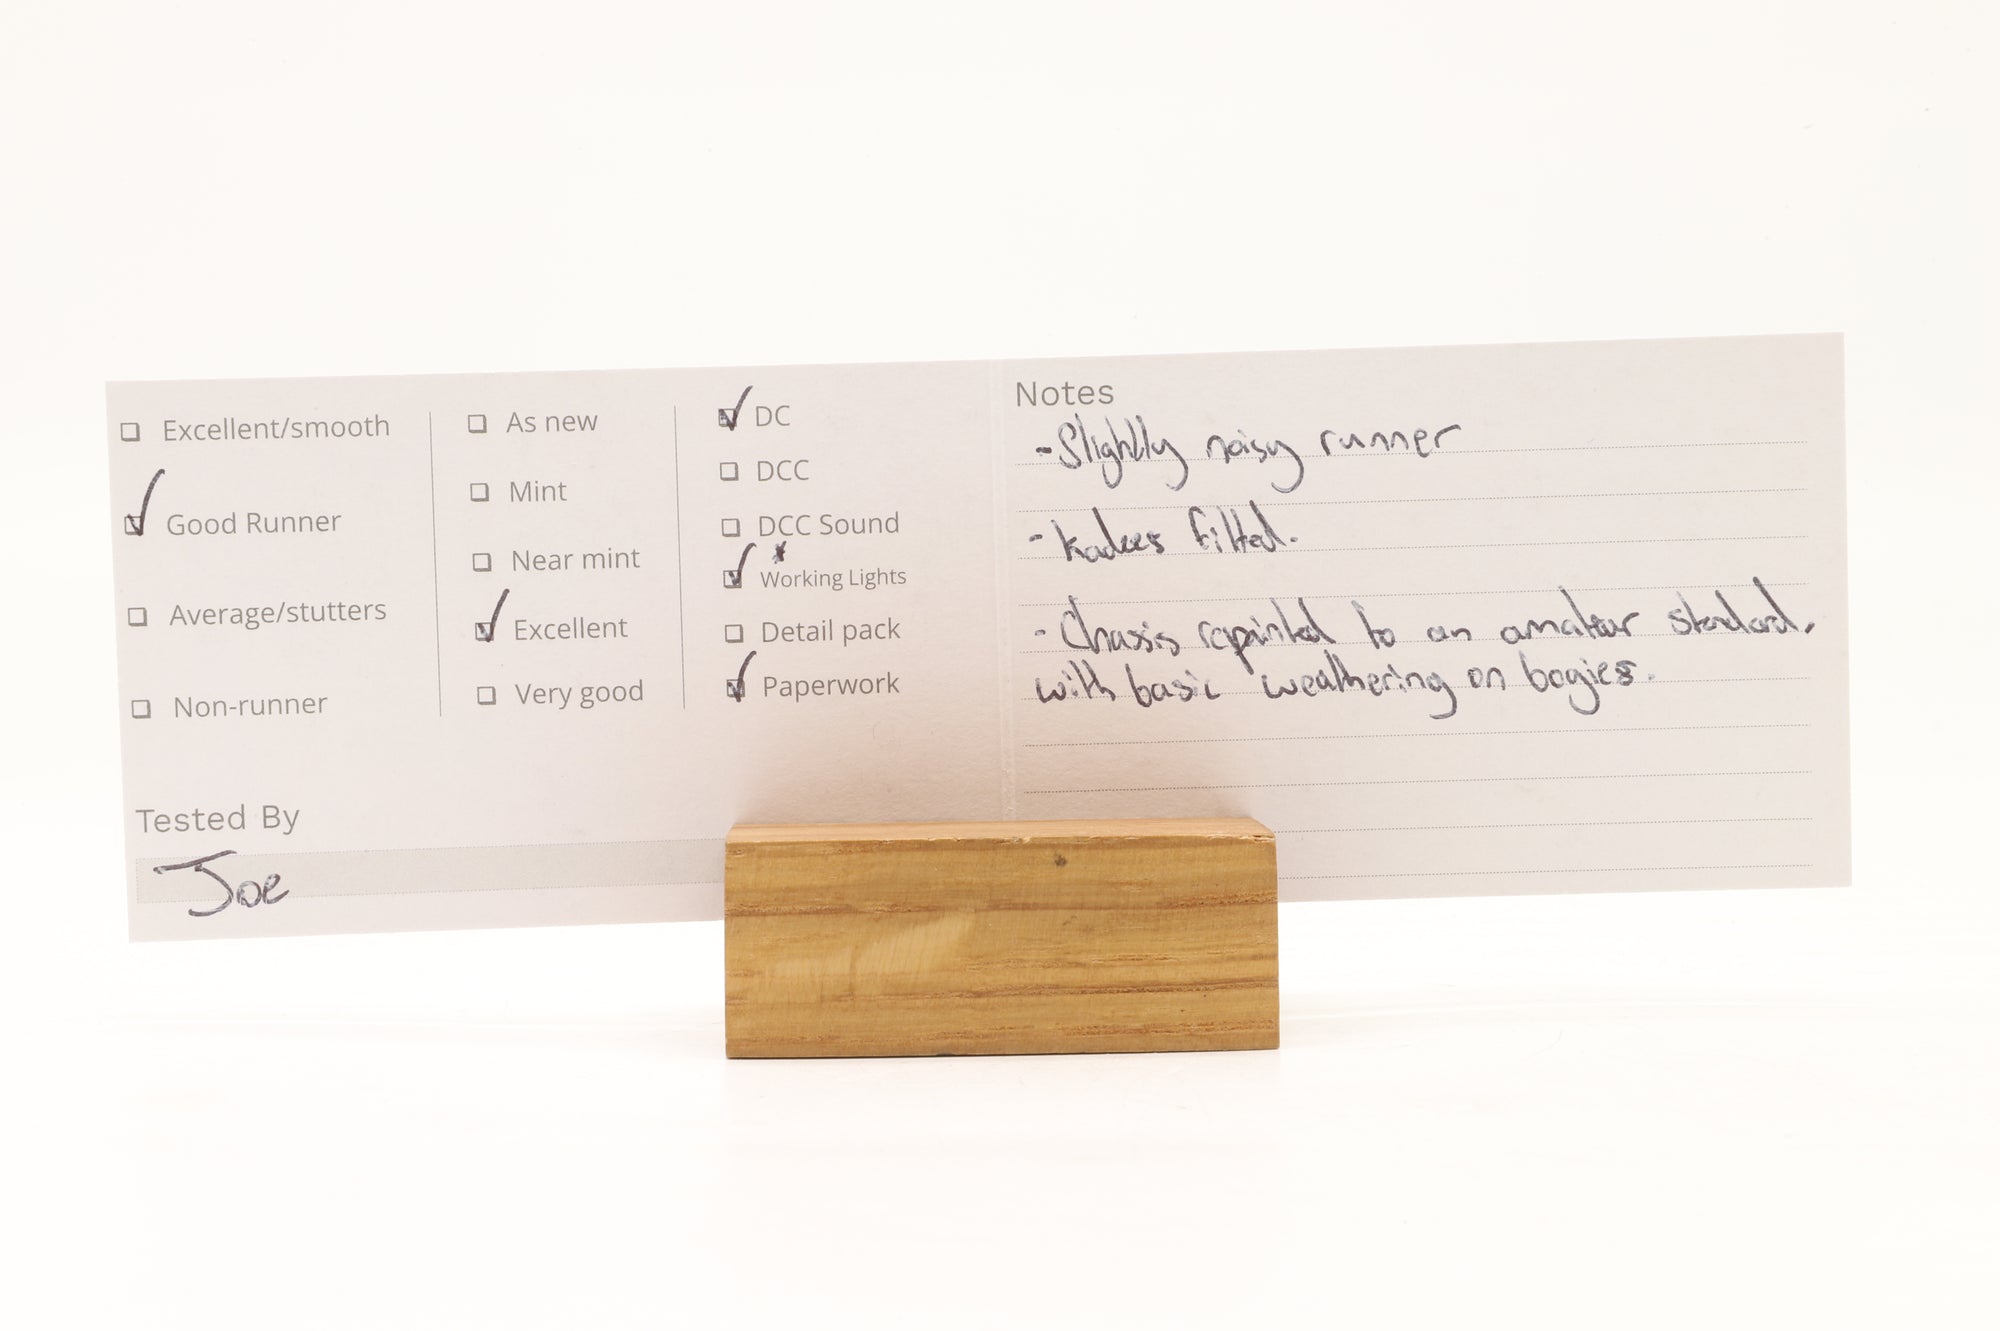 ☐ Excellent/smooth
☑ Good Runner
☐ Average/stutters
☐ Non-runner
☐ As new
☐ Mint
☐ Near mint
☑ Excellent
☐ Very good
☑ DC
☐ DCC
☐ DCC Sound
*
☑ Working Lights
☐ Detail pack
☑ Paperwork
Tested By
Joe
Notes
- Slightly noisy runner
- Kadees fitted.
- Chassis repainted to an amateur standard.
with basic weathering on bogies.